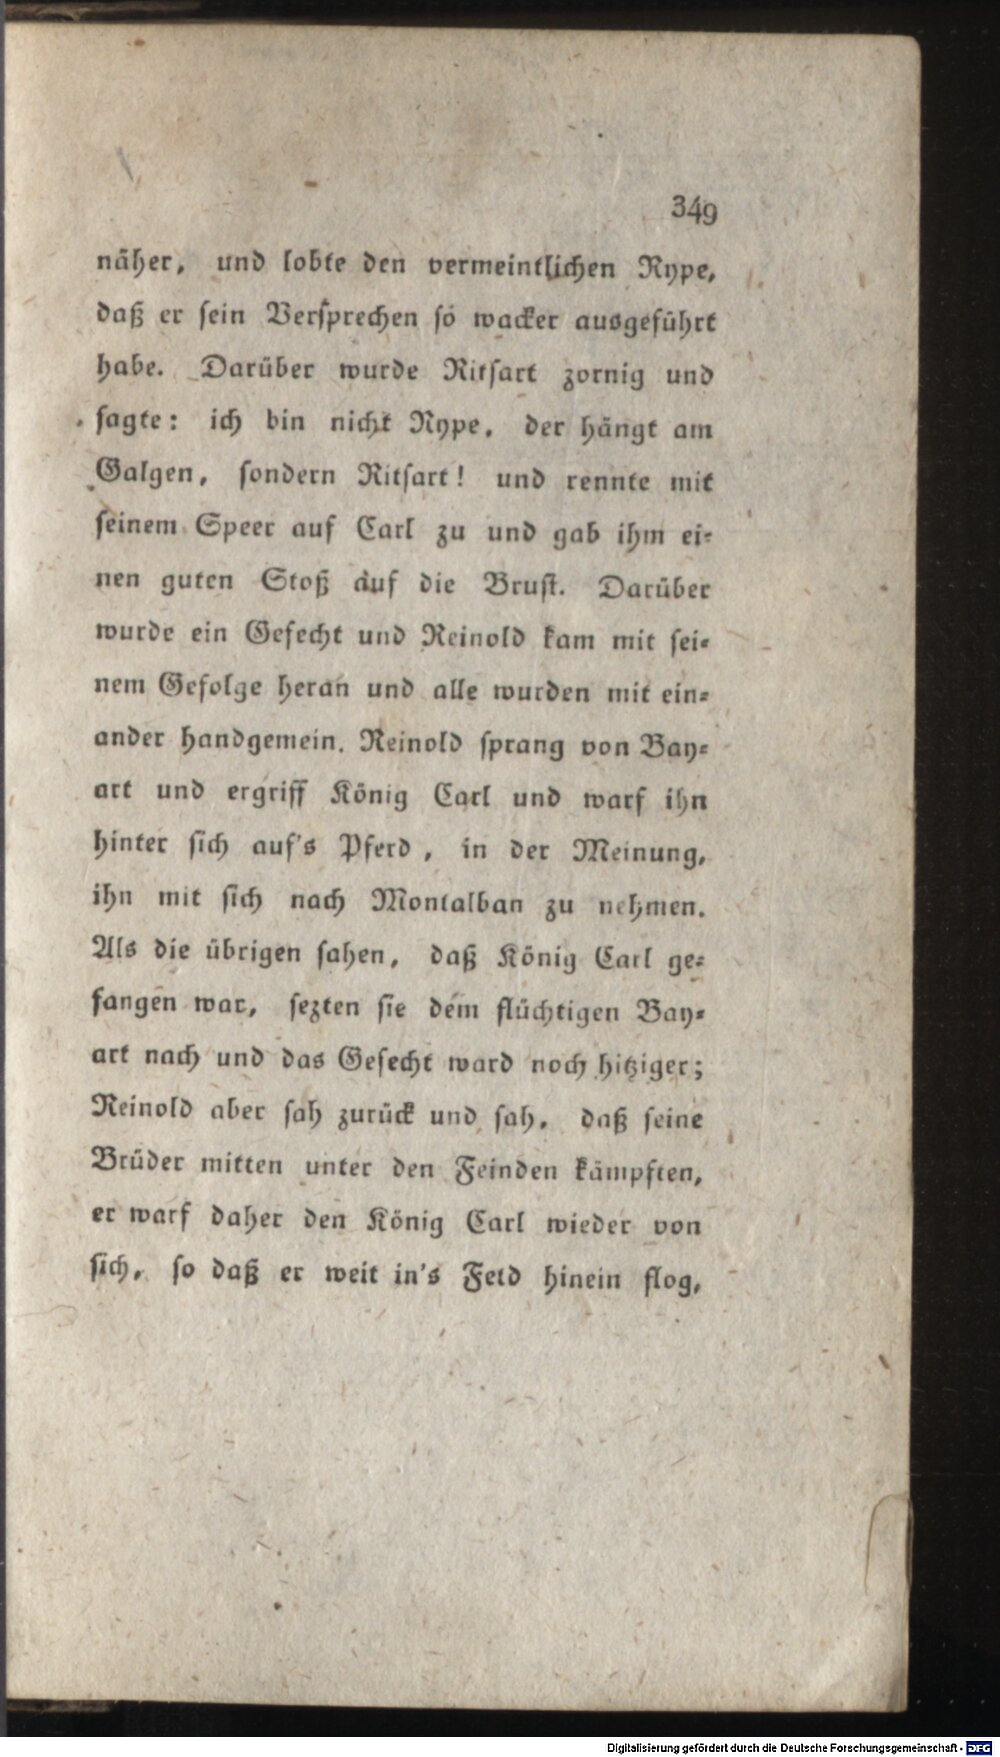 349
näher, und lobte den vermeintlichen Rype,
daß er sein Versprechen so wacker ausgeführt
habe. Darüber wurde Ritsart zornig und
sagte: ich bin nicht Rype, der hängt am
Galgen, sondern Ritsart! und rennte mit
seinem Speer auf Carl zu und gab ihm ei-
nen guten Stoß auf die Brust. Darüber
wurde ein Gefecht und Reinold kam mit sei-
nem Gefolge heran und alle wurden mit ein-
ander handgemein. Reinold sprang von Bay-
art und ergriff König Carl und warf ihn
hinter sich auf's Pferd, in der Meinung,
ihn mit sich nach Montalban zu nehmen.
Als die übrigen sahen, daß König Carl ge-
fangen war, sezten sie dem flüchtigen Bay-
art nach und das Gefecht ward noch hitziger;
Reinold aber sah zurück und sah, daß seine
Brüder mitten unter den Feinden kämpften,
er warf daher den König Carl wieder von
sich, so daß er weit in's Feld hinein flog,
Digitalisierung gefördert durch die Deutsche Forschungsgemeinschaft - DFG